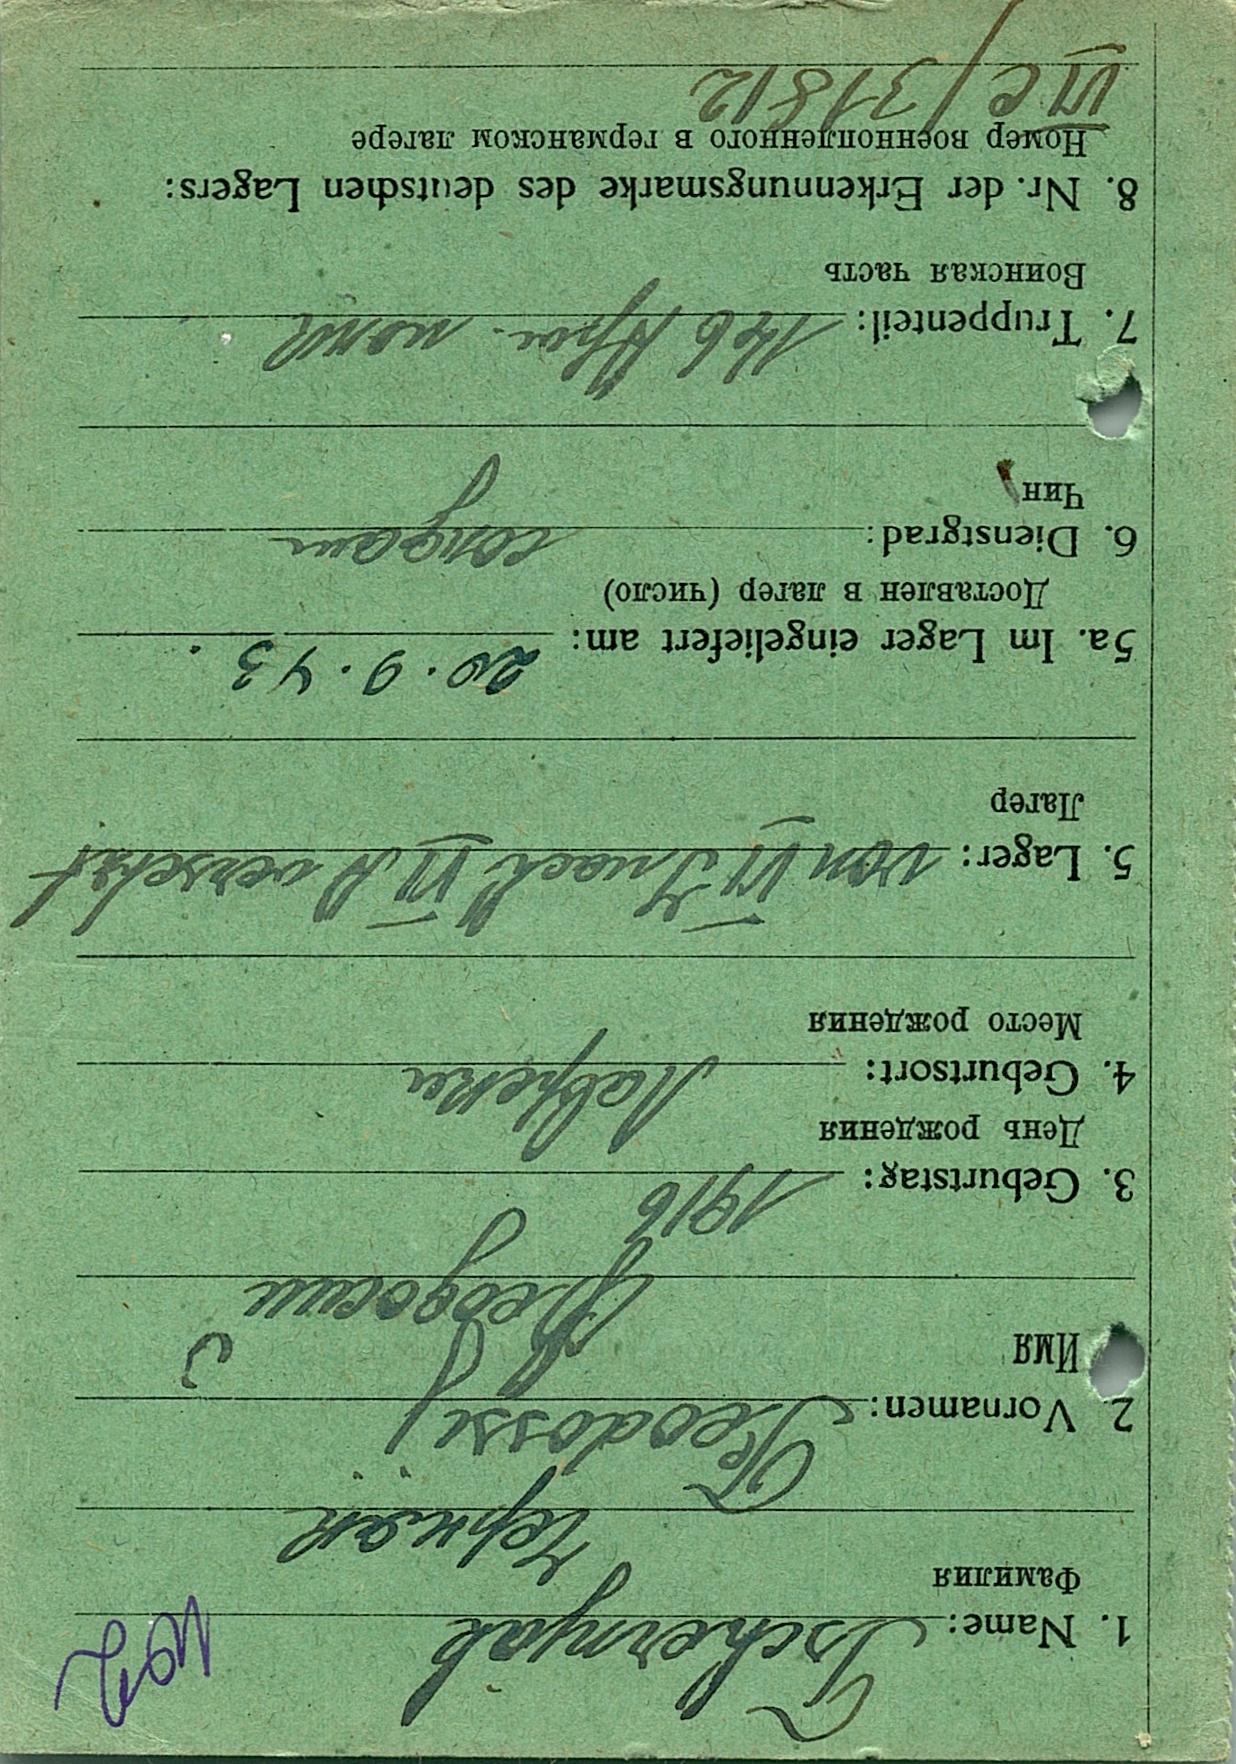 1. Name: Tschernjak
Фамилия
Черняк
2. Vornamen: Feodossij
Имя
Феодосии
3. Geburtstag: 1916
День рождения
4. Geburtsort: Лавреки
Место рождения
5. Lager: von VI J nach VI A versetzt
Лагер
5a. Im Lager eingeliefert am: 20.9.43.
Доставлен в лагер (число)
6. Dienstgrad: солдат
Чин
7. Truppenteil: 146 полк
Воинская часть
8. Nr. der Erkennungsmarke des deutschen Lagers:
Номер военнопленного в германском лагере
VI C/31812